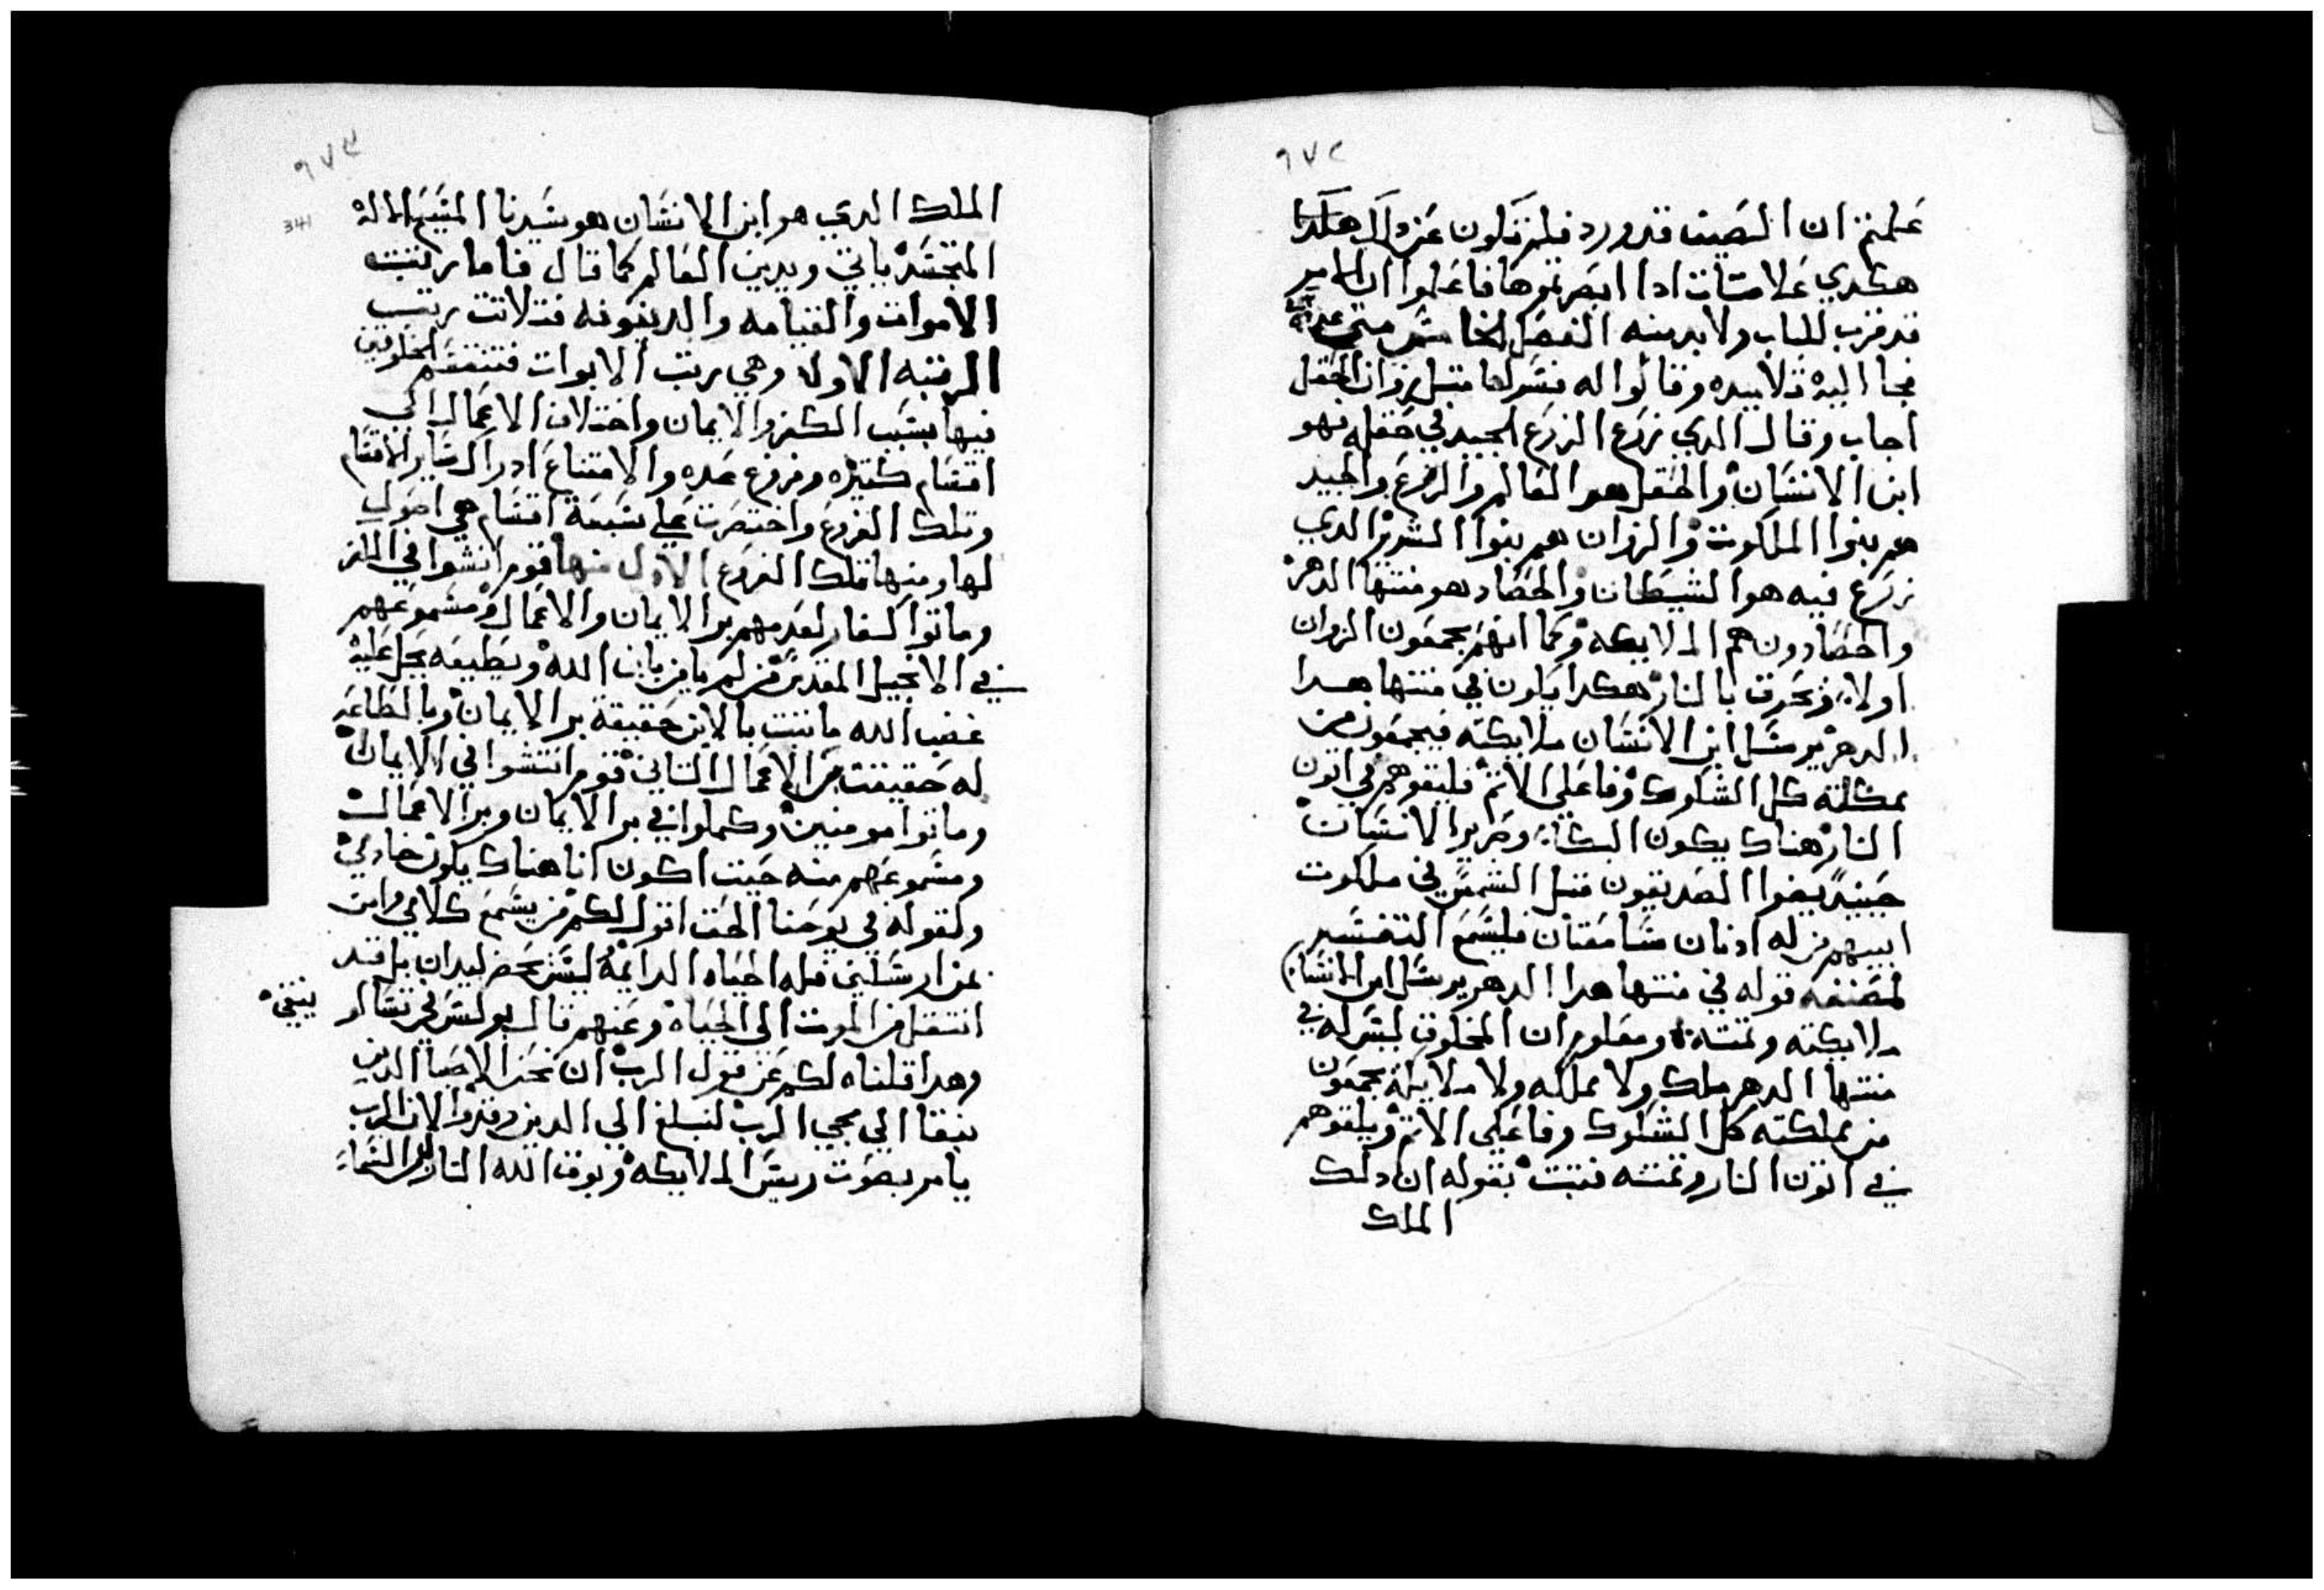 ٦٧٢
علمتم ان الصيف قد ورد فليتكلون عن دلك هكدا
هكدي علامتات ادا ابصرتموها فاعلموا ان الامر
قد قرب للباب ولابد منه الفصل الخامس متي
فجا اليه تلاميده وقالوا له فسر لنا متل زوان الحقل
اجاب وقال الدي زرع الزرع الجيد في حقله فهو
ابن الانسان والحقل هو العالم والزرع والجيد
هم بنوا الملكوت والزوان هم بنوا الشرير الدي
زرع فيه هو الشيطان والحصاد هو منتها الدهر
والحصادون هم الملايكه وكما انهم يجمعون الزوان
اولا ويحرق بالنار هكدا يكون في منتها هدا
الدهر يرسل ابن الانسان ملايكته فيجمعون من
مملكته كل الشكوك وفاعلي الاتم فيلقوهم في اتون
النار هناك يكون البكا وصرير الاسنان
حينيد يضوا الصديقون متل الشمس في ملكوت
ابيهم من له ادنان سامعتان فليسمع التفسير
لمصنفه قوله في منتها هدا الدهر يرسل ابن الانسان
ملايكته وتمته ومعلوم ان المخلوق ليس له في
منتها الدهر ملك ولا مملكه ولا ملايكة يجمعون
من مملكته كل الشكوك وفاعلي الاتم ويلقوهم
في اتون النار وتمته فتبت بقوله ان دلك
الملك
٦٧٣
341
الملك الدي هو ابن الانسان هو سيدنا المسيح الاله
المتجسد ياتي ويدين العالم كما قال فاما رتبت
الاموات والقيامه والدينونه فتلاتت رتب
الرتبه الاولا وهي رتب الابوات فتنقسم المخلوقين
فيها بسبب الكفر والايمان واختلاف الاعمال الي
اقسام كتيره وفروع عده والامتناع ادراك ساير الاقسام
وتلك الفروع واختصرت علي سبعة اقسام هي اصول
لها ومنها تلك الفروع الاول منها قوم انتشوا في الكفر
وماتوا كفار لعدمهم بر الايمان والاعمال ومسموعهم
في الانجيل المقدس من لم يامن بابن الله ويطيعه يحل عليه
غضب الله ما تبت بالابن حقيقة بر الايمان وبالطاعه
له حقيقت بر الاعمال التاني قوم انتشوا في الايمان
وماتوا مومنين وكملوا في بر الايمان وبر الاعمال
ومسموعهم منه حيت اكون انا هناك يكون خادمي
ولقوله في يوحنا الحق اقول لكم من يسمع كلامي وامن
بمن ارسلني فله الحياه الدايمه ليس يحضر ليدان بل قد
انتقل من الموت الي الحياه وعنهم قال بولس في تسالو
نيقي
وهدا قلناه لكم عن قول الرب ان نحن الاحيا الدين
نبقا الي مجي الرب لنبلغ الي الدين رقدوا لان الرب
يامر بصوت رييس الملايكه وبوق الله النازل من السما